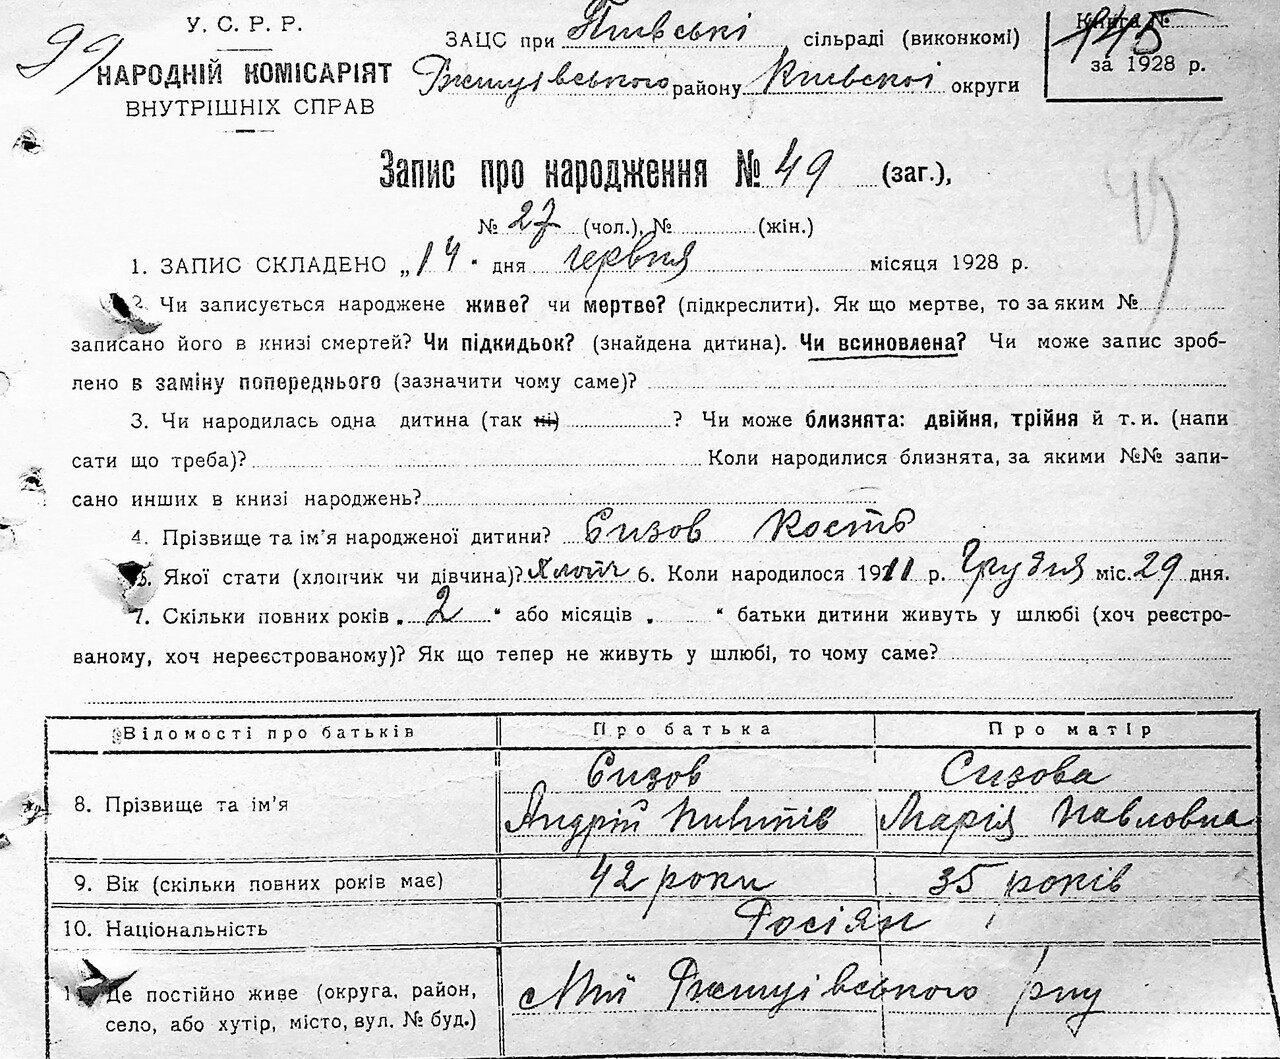 99
У. С. Р. Р.
НАРОДНІЙ КОМІСАРІЯТ
ВНУТРІШНІХ СПРАВ
ЗАЦС при сільраді (виконкомі)
Ржищівського району Київської округи
Книга №
145
за 1928 р.
Запис про народження № 49 (заг.),
№ 27 (чол.), № (жін.)
1. ЗАПИС СКЛАДЕНО „14" дня червня місяця 1928 р.
2. Чи записується народжене живе? чи мертве? (підкреслити). Як що мертве, то за яким №
записано його в книзі смертей? Чи підкидьок? (знайдена дитина). Чи всиновлена? Чи може запис зроб-
лено в заміну попереднього (зазначити чому саме)?
3. Чи народилась одна дитина (так ні) ? Чи може близнята: двійня, трійня й т. и. (напи
сати що треба)? Коли народилися близнята, за якими №№ запи-
сано инших в книзі народжень?
4. Прізвище та ім'я народженої дитини? Сизов Кость
5. Якої стати (хлопчик чи дівчина)? Хлопч 6. Коли народилося 1911 р. Грудня міс. 29 дня.
7. Скільки повних років „ 2 " або місяців „ " батьки дитини живуть у шлюбі (хоч реєстро-
ваному, хоч нереєстрованому)? Як що тепер не живуть у шлюбі, то чому саме?
Відомості про батьків Про батька Про матір
8. Прізвище та ім'я Сизов Андрій Сизова Марія Павловна
9. Вік (скільки повних років має) 42 роки 35 років
10. Національність Росіян
11. Де постійно живе (округа, район,
село, або хутір, місто, вул. № буд.) Ржищівського р-ну